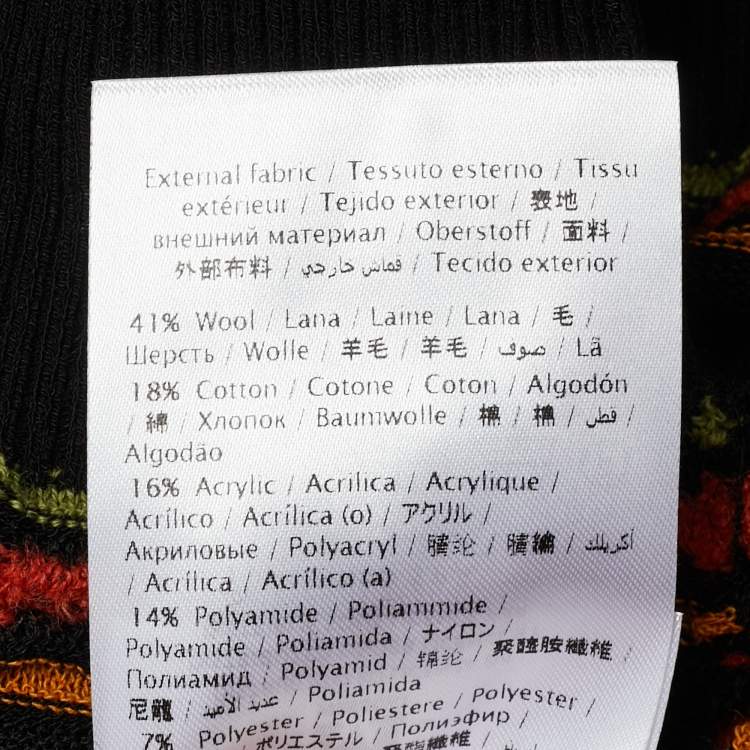 External fabric / Tessuto esterno / Tissu
extérieur / Tejido exterior / 表地 /
внешний материал / Oberstoff / 面料 /
外部布料 / قماش خارجي / Tecido exterior
41% Wool / Lana / Laine / Lana / 毛 /
Шерсть / Wolle / 羊毛 / 羊毛 / صوف / Lã
18% Cotton / Cotone / Coton / Algodón
/ 綿 / Хлопок / Baumwolle / 棉 / 棉 / قطن /
Algodão
16% Acrylic / Acrilica / Acrylique /
Acrílico / Acrílica (o) / アクリル /
Акриловые / Polyacryl / 腈纶 / 腈綸 / أكريلك
/ Acrílica / Acrílico (a)
14% Polyamide / Poliammide /
Polyamide / Poliamida / ナイロン /
Полиамид / Polyamid / 锦纶 / 聚醯胺纖維 /
尼龍 / عديد الأميد / Poliamida
7% Polyester / Poliestere / Polyester /
/ ポリエステル / Полиэфир /
聚酯纖維 /